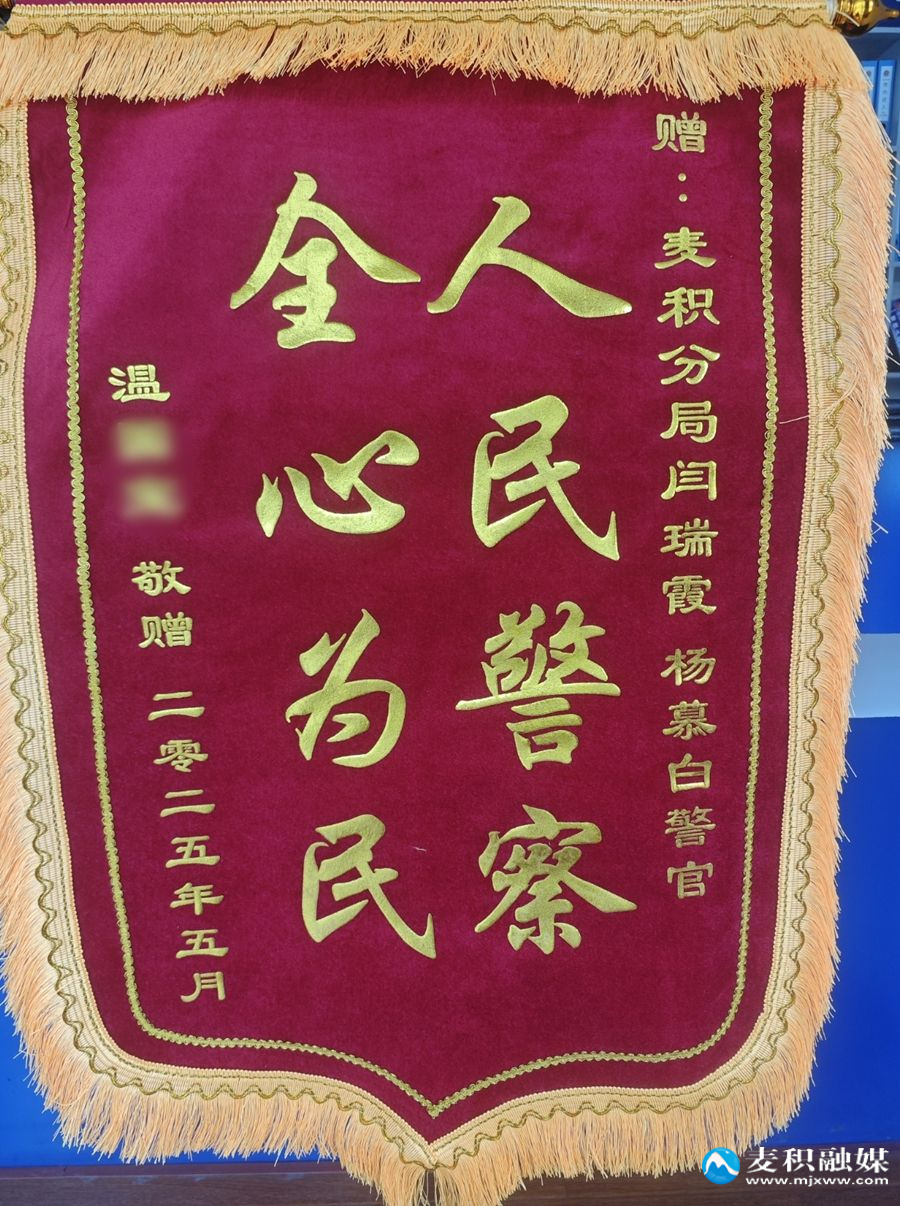 赠：麦积分局闫瑞霞 杨慕白警官
人民警察
全心为民
温 敬赠 二零二五年五月
麦积融媒
www.mjxww.com